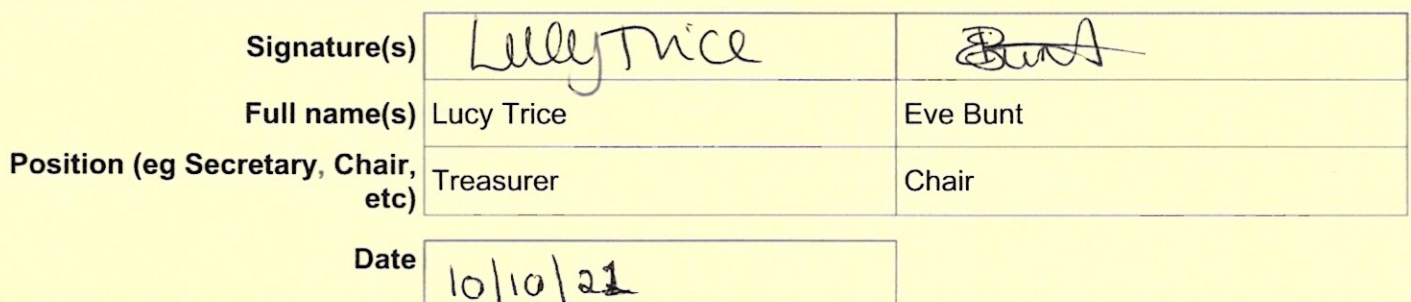 Signature(s) Lucy Trice EBunt
Full name(s) Lucy Trice Eve Bunt
Position (eg Secretary, Chair, etc) Treasurer Chair
Date 10/10/21